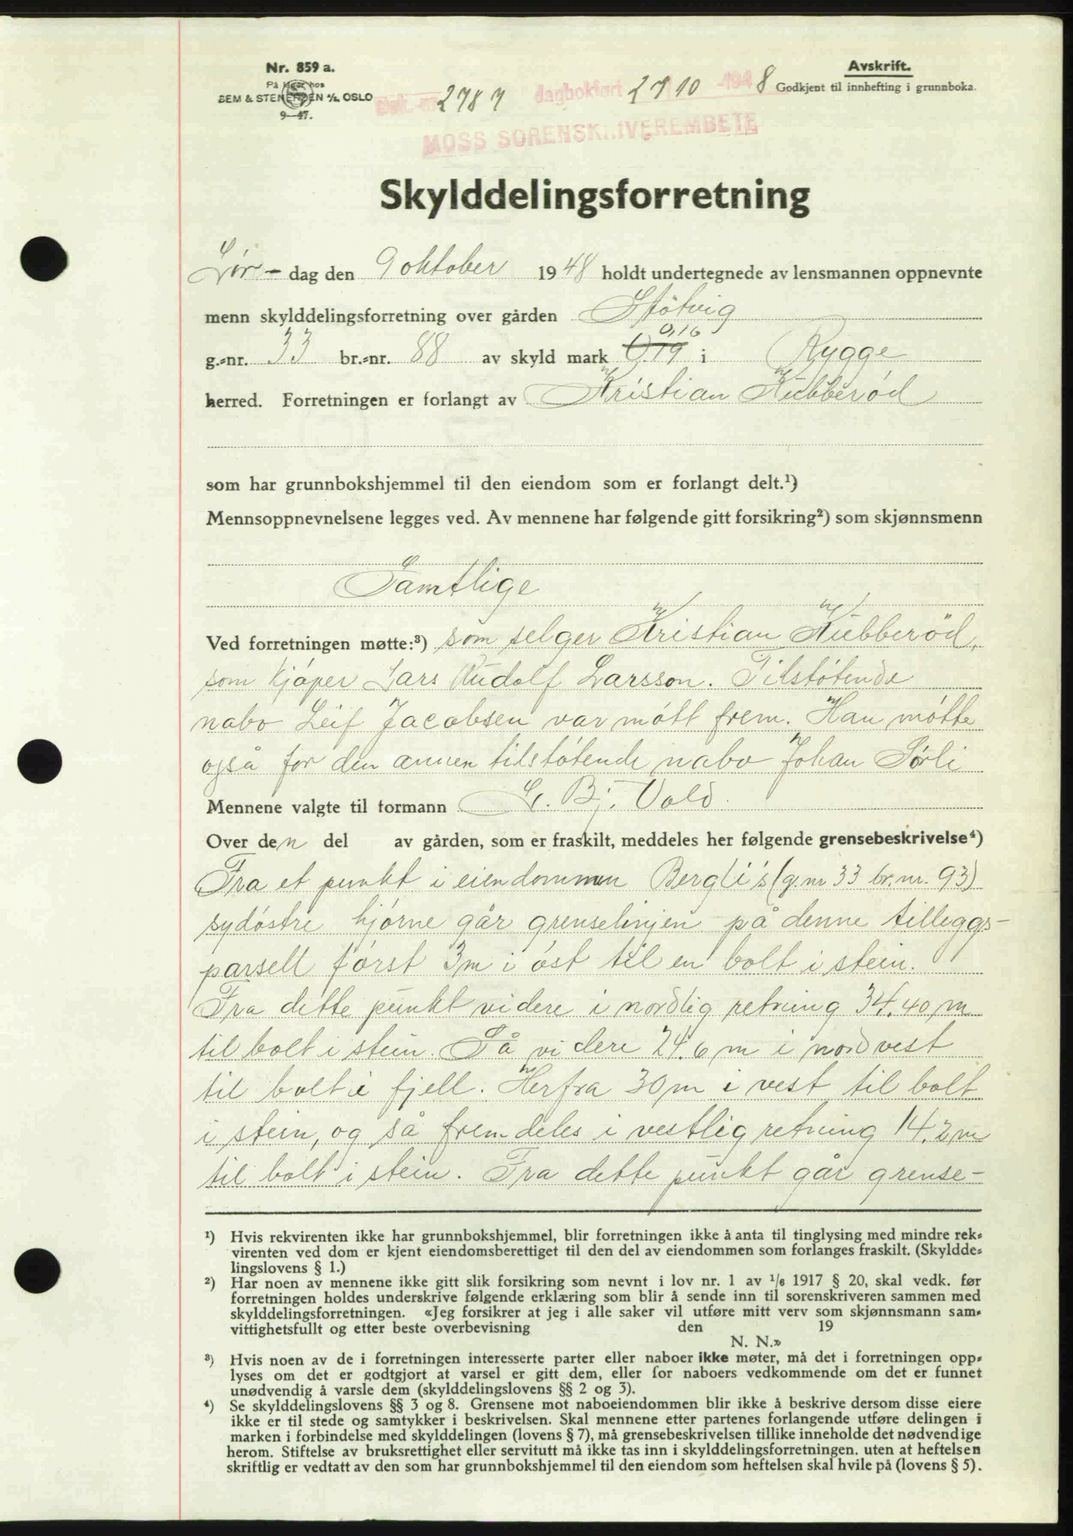 Nr. 859 a.
På lager hos
SEM & STENERSEN A/S, OSLO
9—47.
Avskrift.
Godkjent til innhefting i grunnboka.
Dok.-nr. 2787 dagbokført 27 10 -1948
MOSS SORENSKRIVEREMBETE
Skylddelingsforretning
Lør- dag den 9 oktober 1948 holdt undertegnede av lensmannen oppnevnte
menn skylddelingsforretning over gården Støtvig
0,16
g.-nr. 33 br.-nr. 88 av skyld mark 0.19 i Rygge
herred. Forretningen er forlangt av Kristian Kubberød
som har grunnbokshjemmel til den eiendom som er forlangt delt.¹)
Mennsoppnevnelsene legges ved. Av mennene har følgende gitt forsikring²) som skjønnsmenn
Samtlige
Ved forretningen møtte:³) som selger Kristian Kubberød,
som kjøper Lars Rudolf Larsson. Tilstøtende
nabo Leif Jacobsen var møtt frem. Han møtte
også for den annen tilstøtende nabo Johan Sørli
Mennene valgte til formann L. Bj. Vold.
Over den del av gården, som er fraskilt, meddeles her følgende grensebeskrivelse⁴)
Fra et punkt i eiendommen Bergli's (g.nr 33 br.nr. 93)
sydøstre hjørne går grenselinjen på denne tilleggs-
parsell først 3m i øst til en bolt i stein.
Fra dette punkt videre i nordlig retning 34.40 m
til bolt i stein. Så videre 24.6 m i nordvest
til bolt i fjell. Herfra 30 m i vest til bolt
i stein, og så fremdeles i vestlig retning 14.2 m
til bolt i stein. Fra dette punkt går grense-
¹) Hvis rekvirenten ikke har grunnbokshjemmel, blir forretningen ikke å anta til tinglysing med mindre rek-
virenten ved dom er kjent eiendomsberettiget til den del av eiendommen som forlanges fraskilt. (Skyldde-
lingslovens § 1.)
²) Har noen av mennene ikke gitt slik forsikring som nevnt i lov nr. 1 av 1/6 1917 § 20, skal vedk. før
forretningen holdes underskrive følgende erklæring som blir å sende inn til sorenskriveren sammen med
skylddelingsforretningen. «Jeg forsikrer at jeg i alle saker vil utføre mitt verv som skjønnsmann sam-
vittighetsfullt og etter beste overbevisning den 19
N. N.»
³) Hvis noen av de i forretningen interesserte parter eller naboer ikke møter, må det i forretningen opp-
lyses om det er godtgjort at varsel er gitt dem, eller for naboers vedkommende om det er funnet
unødvendig å varsle dem (skylddelingslovens §§ 2 og 3).
⁴) Se skylddelingslovens §§ 3 og 8. Grensene mot naboeiendommen blir ikke å beskrive dersom disse eiere
ikke er til stede og samtykker i beskrivelsen. Skal mennene etter partenes forlangende utføre delingen i
marken i forbindelse med skylddelingen (lovens § 7), må grensebeskrivelsen tillike inneholde det nødvendige
herom. Stiftelse av bruksrettighet eller servitutt må ikke tas inn i skylddelingsforretningen. uten at heftelsen
skriftlig er vedtatt av den som har grunnbokshjemmel til den eiendom som heftelsen skal hvile på (lovens § 5).